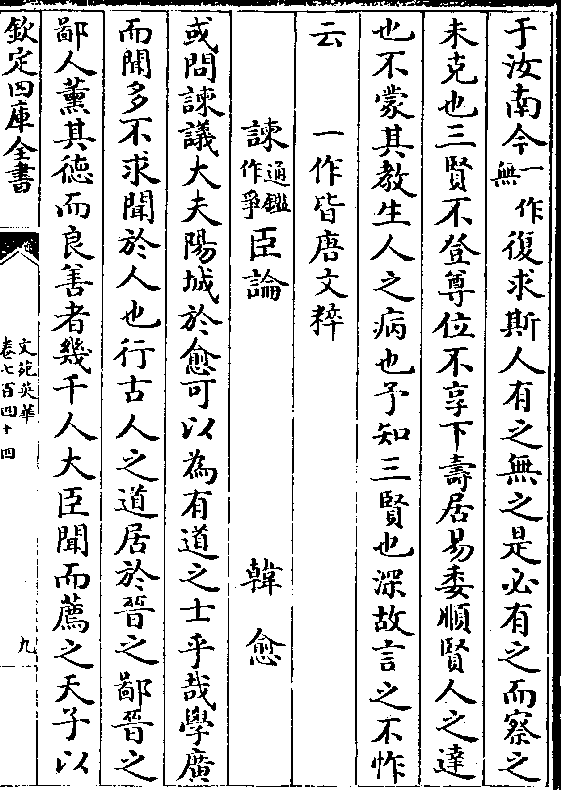 于汝南今一作無復求斯人有之無之是必有之而察之
未克也三賢不登尊位不享下壽居易委順賢人之達
也不蒙其教生人之病也予知三賢也深故言之不怍
云　一作皆唐文粹
諫通鑑作爭臣論　韓愈
或問諫議大夫陽城於愈可以為有道之士乎哉學廣
而聞多不求聞於人也行古人之道居於晉之鄙晉之
鄙人薰其徳而良善者幾千人大臣聞而薦之天子以
欽定四庫全書
文苑英華
卷七百四十四
九